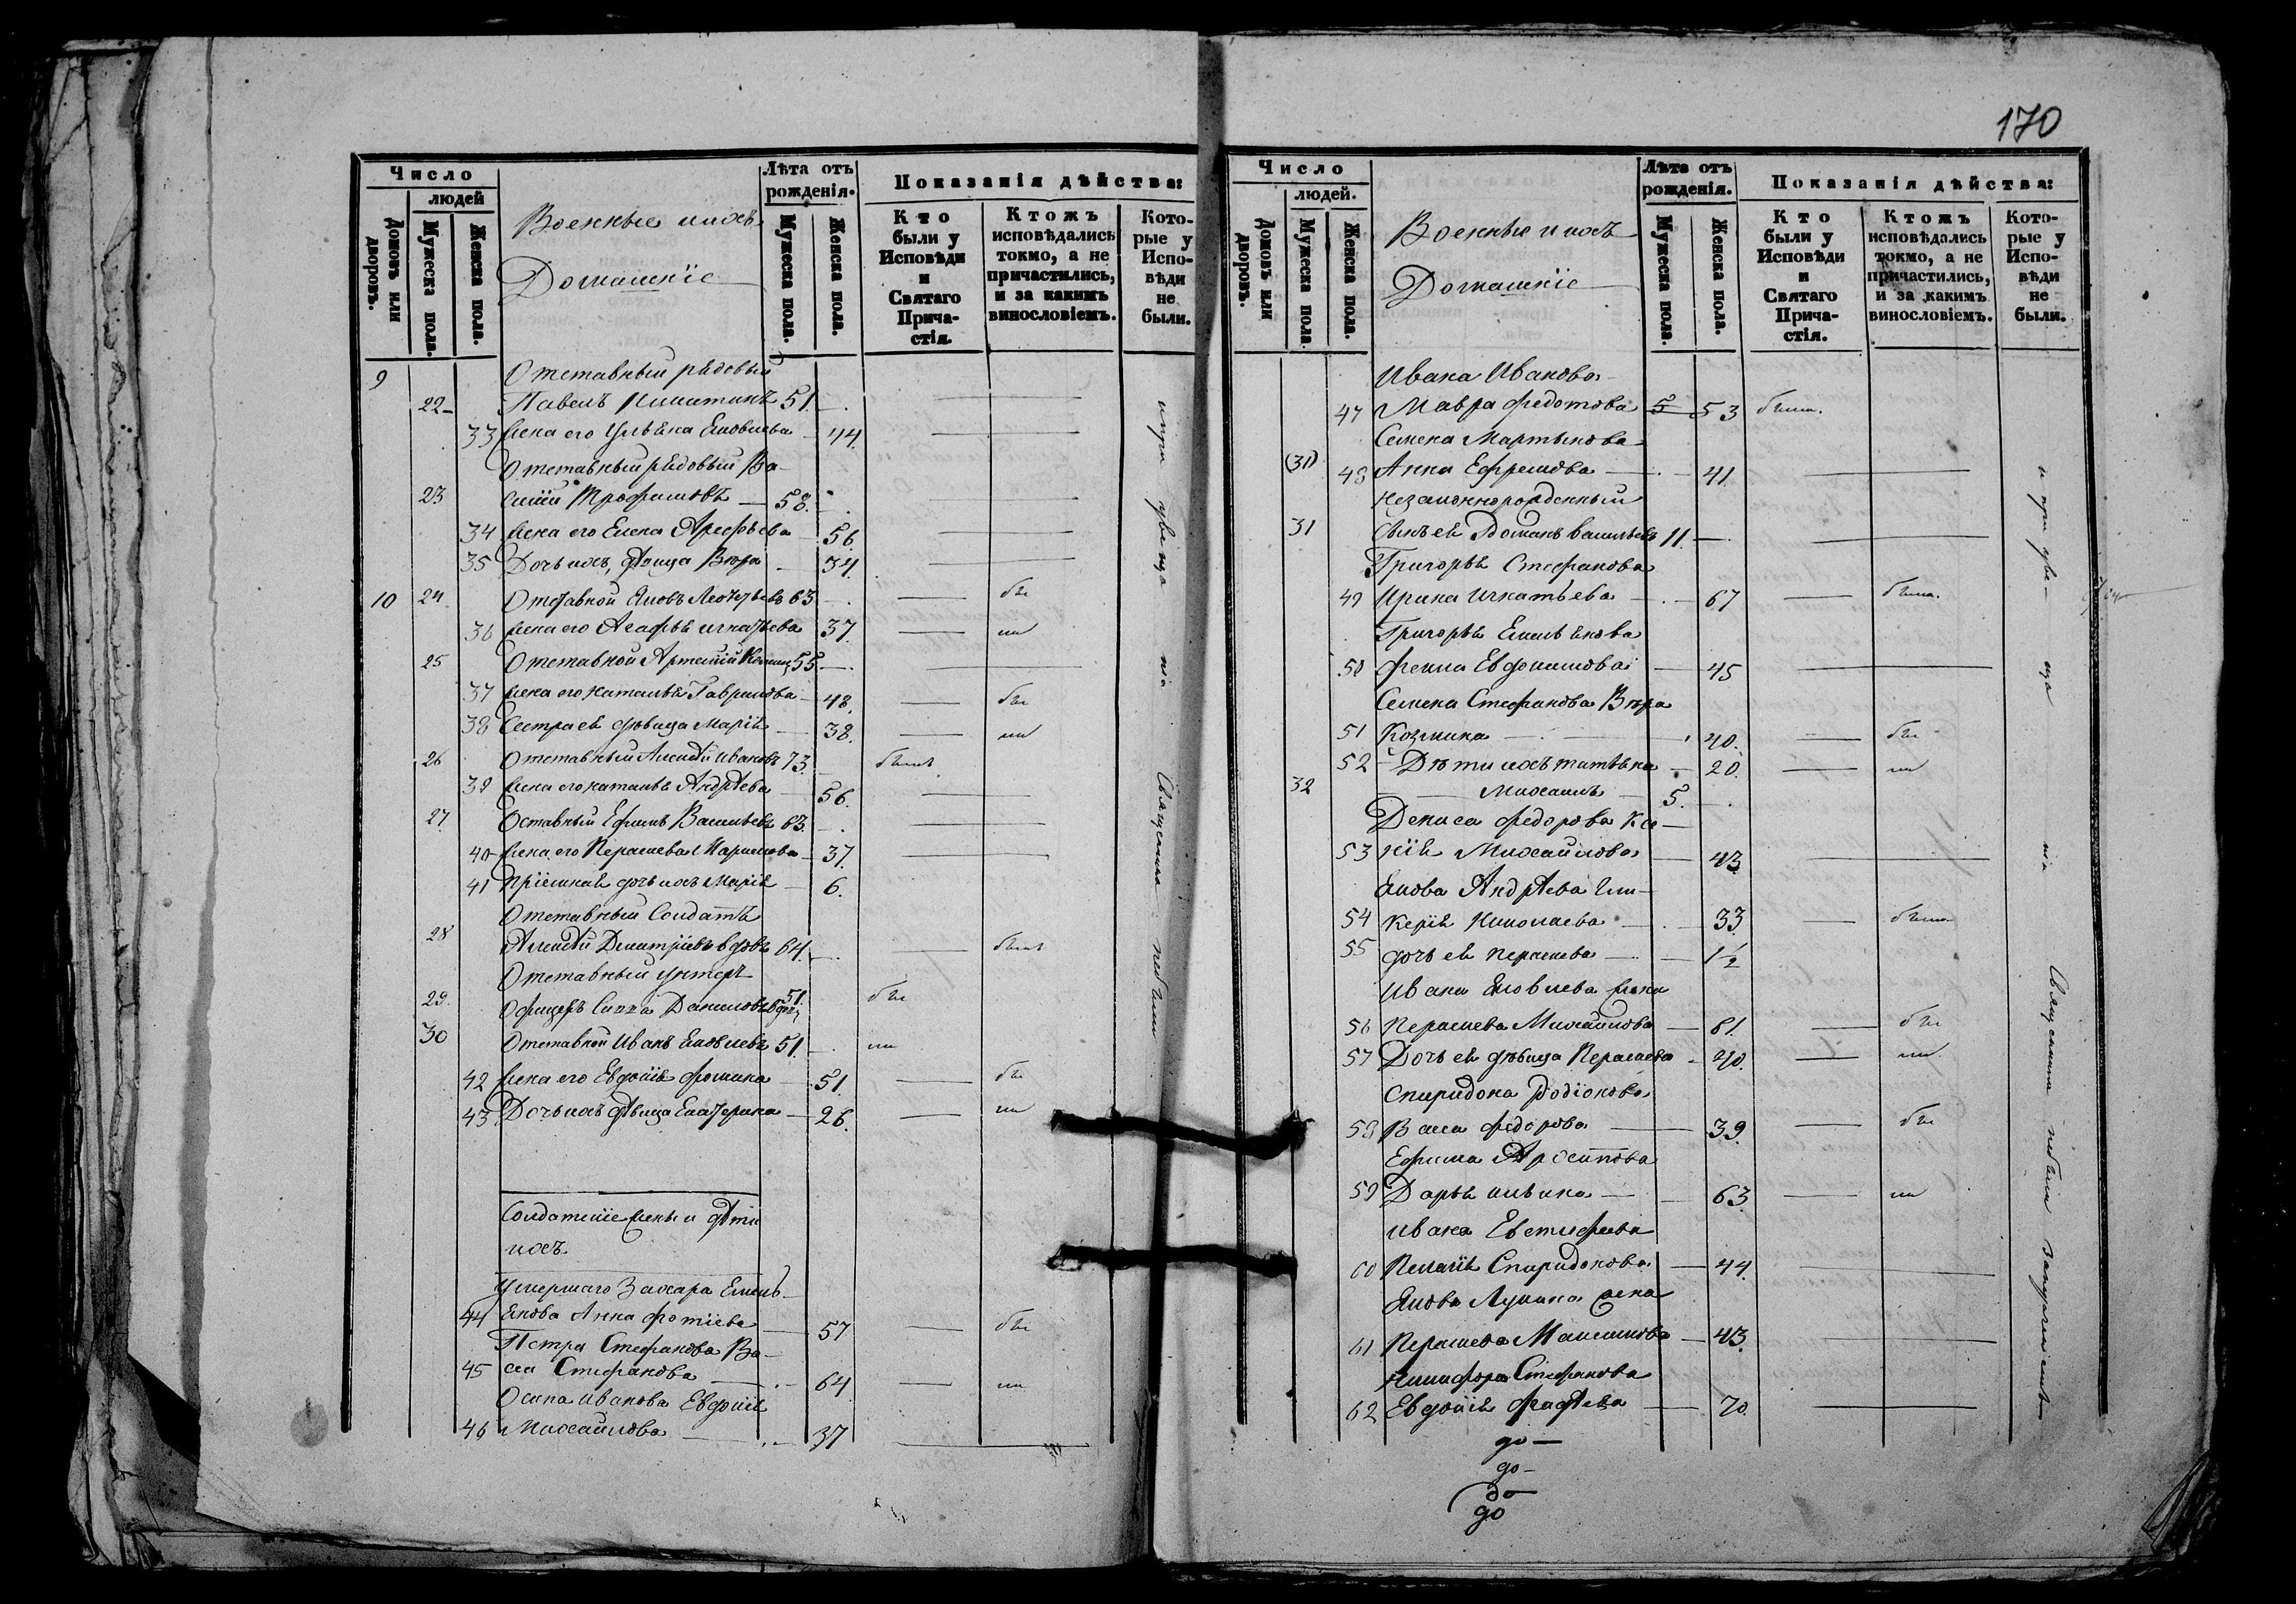 170
Число
людей
Домовъ или дворовъ.
Мужеска пола.
Женска пола.
Военные и ихъ
Домашніе
Лѣта отъ
рожденія.
Мужеска пола.
Женска пола.
Показанія дѣйства:
Кто
были у
Исповѣди
и
Святаго
Прича-
стія.
Ктожъ
исповѣдались
токмо, а не
причастились,
и за какимъ
винословіемъ.
Кото-
рые у
Испо-
вѣди
не
были.
9
Отставный рядовый
22 Павелъ Никитинъ 51.
33 жена его Ульяна Яковлева 44.
Отставный рядовый Ва-
23 силій Трофимовъ 58.
34 жена его Елена Арефьева 56
35 Дочь ихъ, дѣвица Вѣра 34.
10 24 Отставной Яковъ 63
36 жена его Агафья Игнатьева 37.
25 Отставной Артемій 55.
37 жена его Наталья Гаврилова 48.
38 Сестра ея дѣвица Марія 38.
26 Отставный Алексѣй Ивановъ 73. былъ
39 жена его Наталья Андрѣева 56.
27. Отставный Ефимъ Васильевъ 63.
40 жена его Парасковья 37.
41 Пріемная дочь ихъ Марія 6.
Отставный Солдатъ
28 Алексѣй Дмитріевъ вдовъ 64.
Отставный унтеръ
29. Офицеръ Савва Даниловъ 51.
30 Отставной Иванъ Яковлевъ 51.
42 жена его Евдокія Фомина 51.
43 Дочь ихъ дѣвица Екатерина 26.
Солдатскіе жены и дѣти
ихъ.
Умершаго Захара Емель-
44 янова Анна Фотіева 57
Петра Стефанова Ва-
45 са Стефанова 64
Осипа Иванова Евдокія
46 Михайлова 37
Число
людей.
Домовъ или дворовъ.
Мужеска пола.
Женска пола.
Военные и ихъ
Домашніе
Лѣта отъ
рожденія.
Мужеска пола.
Женска пола.
Показанія дѣйства:
Кто
были у
Исповѣди
и
Святаго
Прича-
стія.
Ктожъ
исповѣдались
токмо, а не
причастились,
и за какимъ
винословіемъ.
Кото-
рые у
Испо-
вѣди
не
были.
Ивана Иванова
47 Мавра Федотова 53 была.
Семена Мартынова
(31) 48 Анна Ефремова 41.
незаконнорожденный
31 сынъ ея Романъ Васильевъ 11.
Григорья Стефанова
49 Ирина Игнатьева 67 была.
Григорья Емельянова
50 Фекла Евдокимова 45
Семена Стефанова Вѣра
51 Козмина 40.
52 Дѣти ихъ Татьяна 20.
32 Михаилъ 5.
Дениса Федорова Ксе-
53 нія Михайлова 43
Якова Андрѣева Гли-
54 керія Николаева 33. была
55 дочь ея Парасковья 1½
Ивана Яковлева жена
56 Парасковья Михайлова 61.
57 Дочь ея дѣвица Парасковья 40.
Спиридона Родіонова
58 Васса Федорова 39.
Ефима Архипова
59 Дарья Ильина 63
Ивана Евстифеева
60 Пелагія Спиридонова 44.
Якова Лукина жена
61 Парасковья Максимова 43.
Никифора Стефанова
62 Евдокія Фадѣева 70.
до
до
до
до